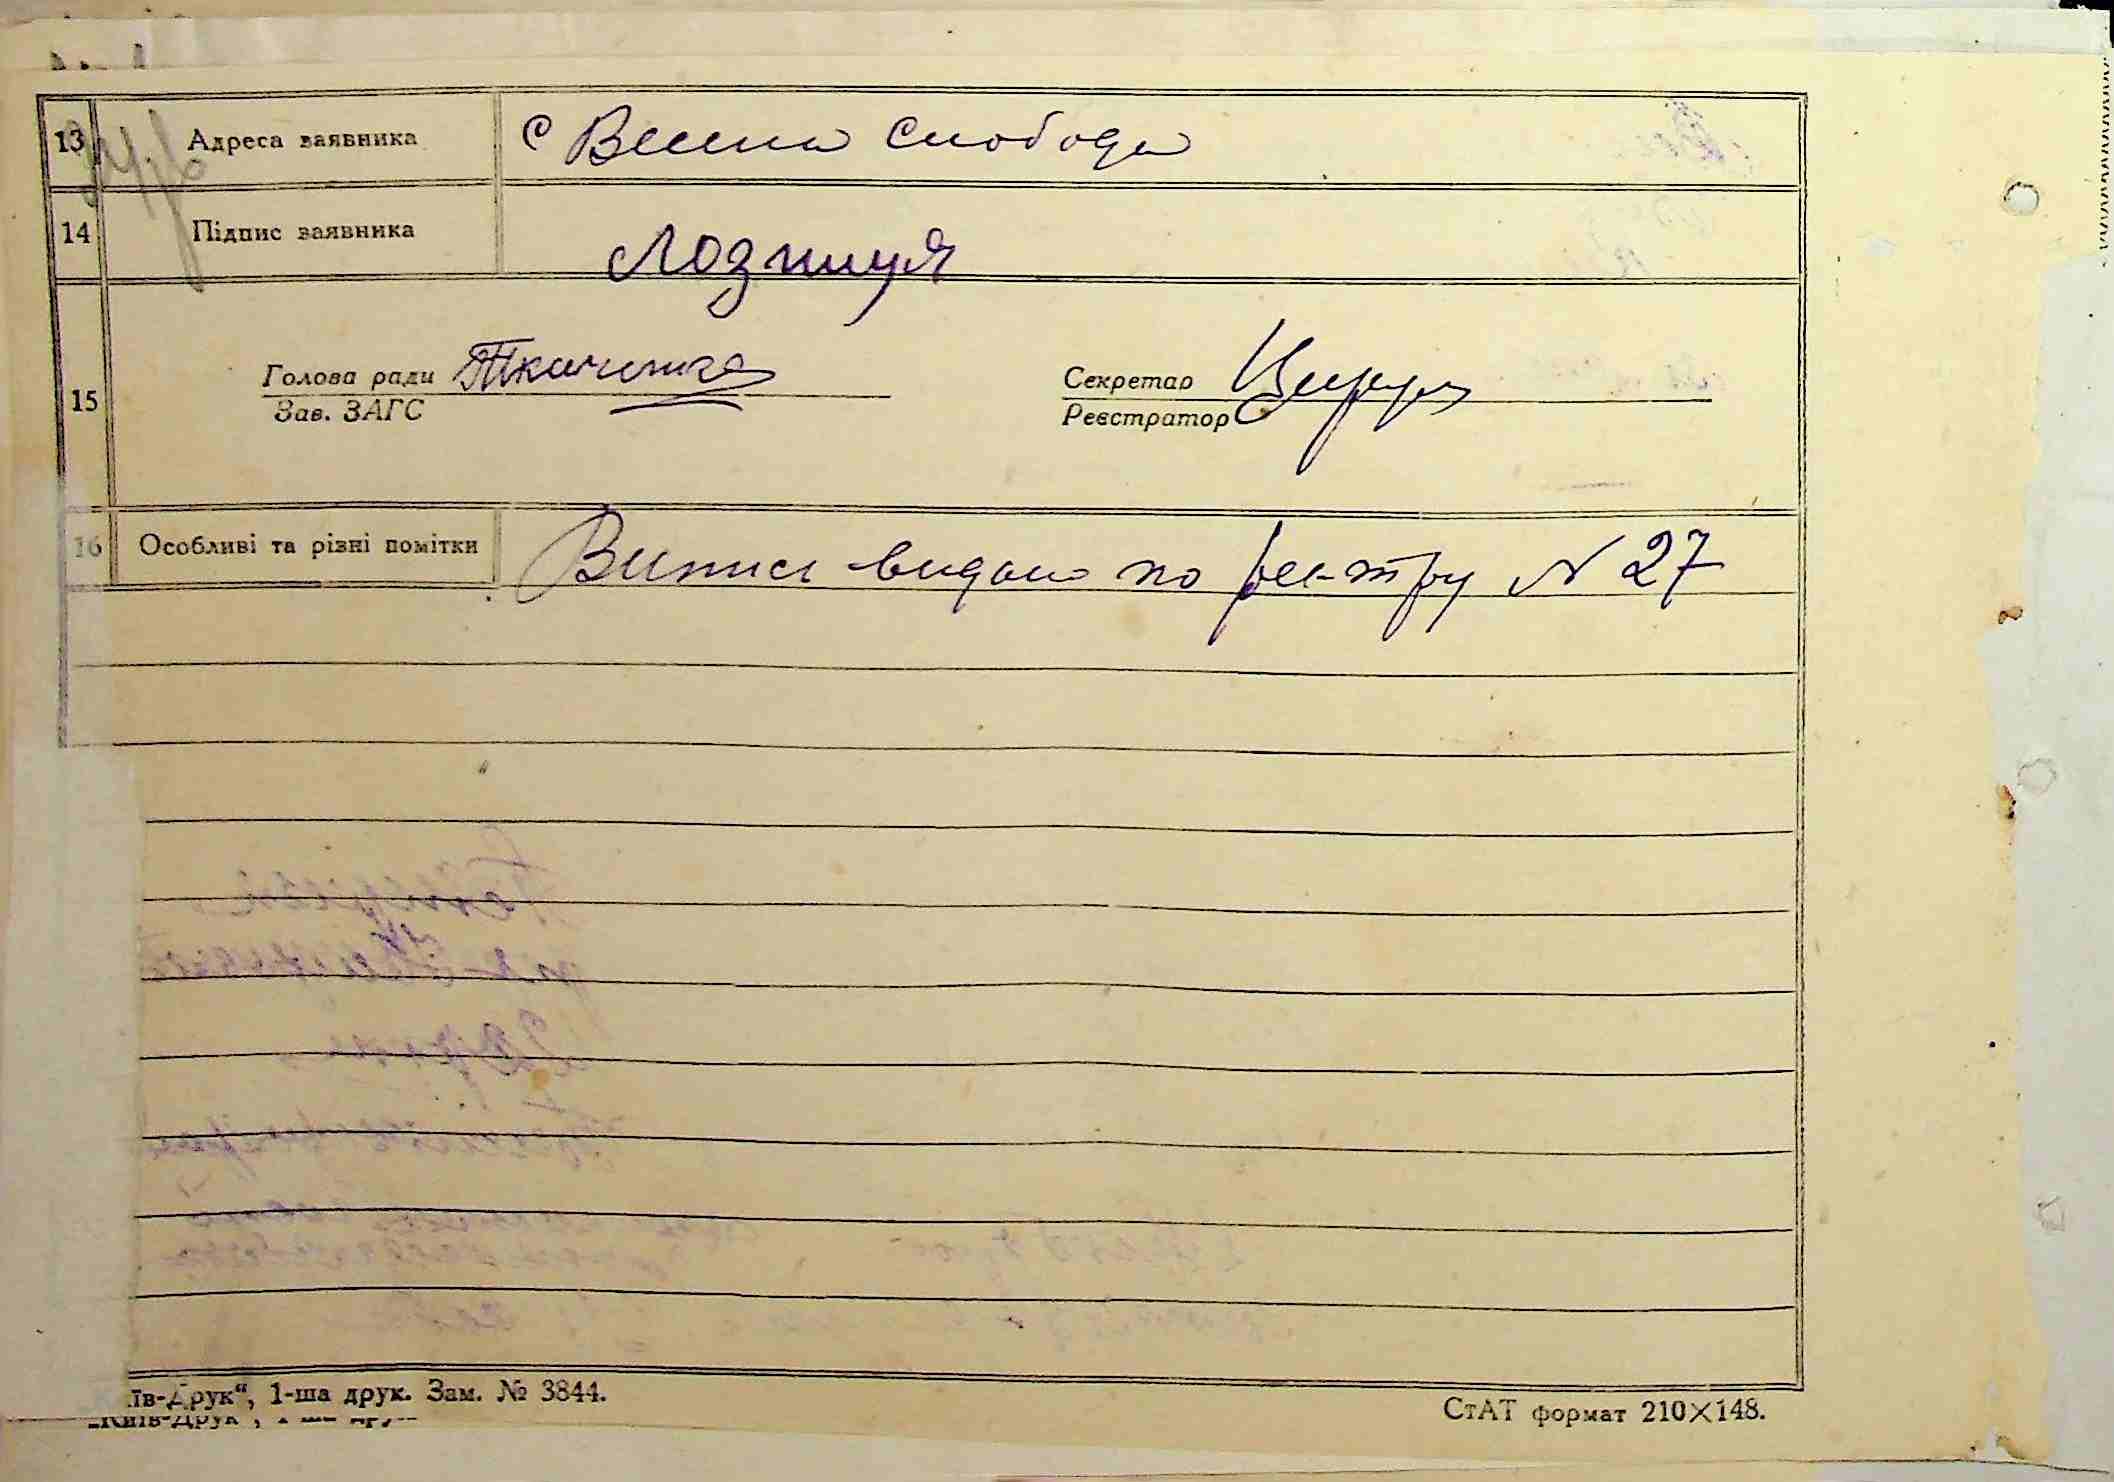 13 Адреса заявника с Велика Слобода
14 Підпис заявника Лозниця
15 Голова ради Ткаченко Секретар
Зав. ЗАГС Реєстратор
16 Особливі та різні помітки Випис видано по реєстру N 27
їв-Друк“, 1-ша друк. Зам. № 3844.
СтАТ формат 210×148.
„Київ-Друк“, 1-ша друк.